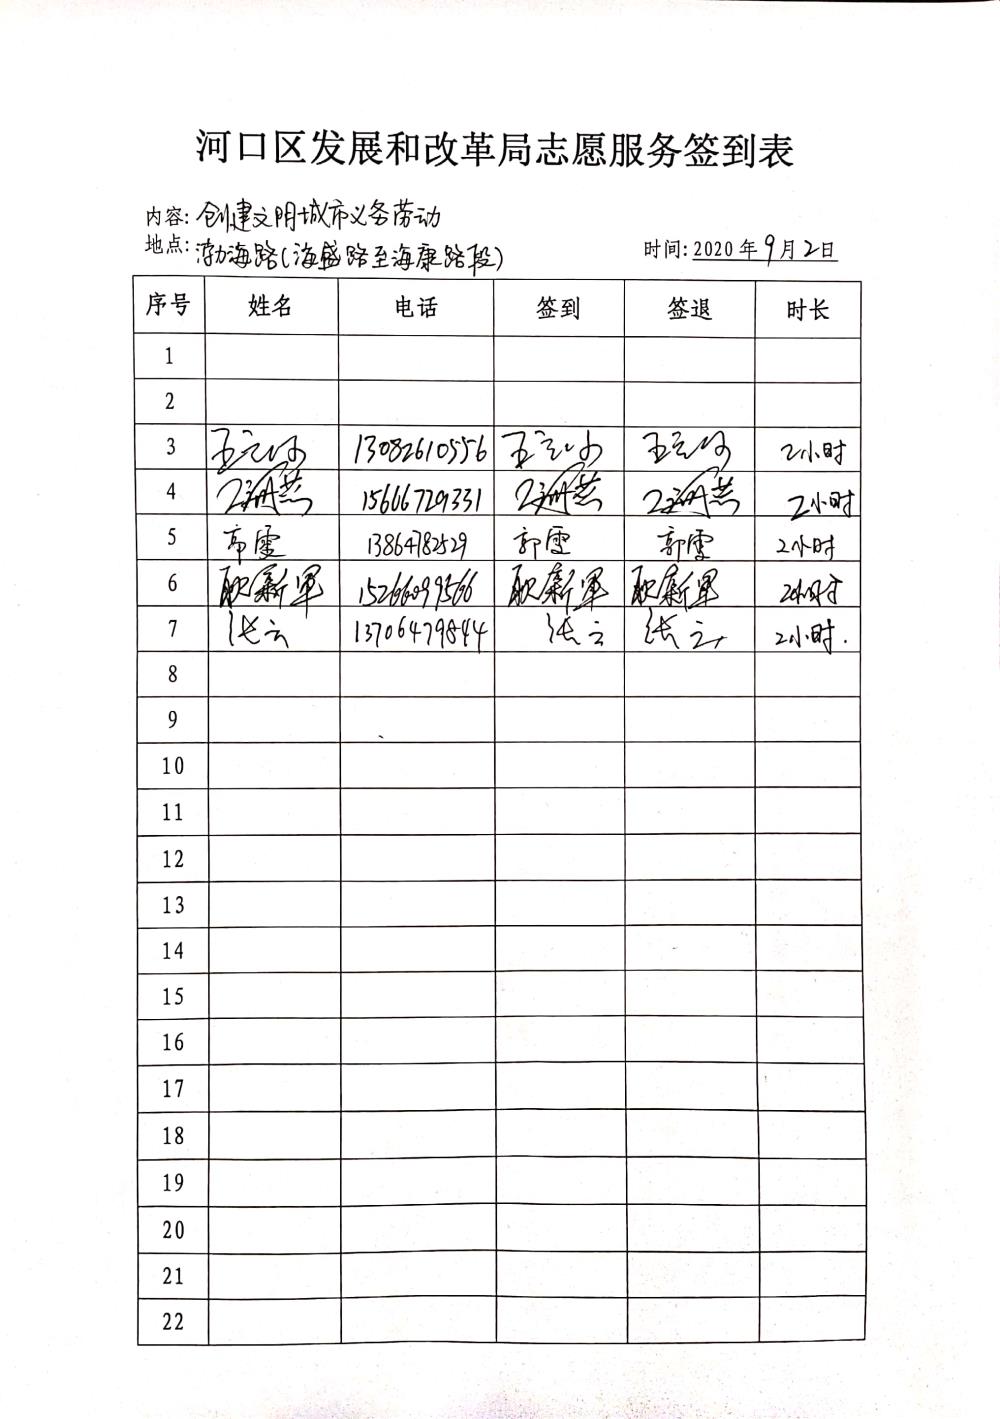 河口区发展和改革局志愿服务签到表
内容: 创建文明城市义务劳动
地点: 渤海路(海盛路至海康路段) 时间: 2020年9月2日
序号 姓名 电话 签到 签退 时长
1
2
3 13082610556 2小时
4 15666729331 2小时
5 郭雯 13864782529 郭雯 郭雯 2小时
6 耿新军 15266099566 耿新军 耿新军 2小时
7 张云 13706479844 张云 张云 2小时.
8
9
10
11
12
13
14
15
16
17
18
19
20
21
22